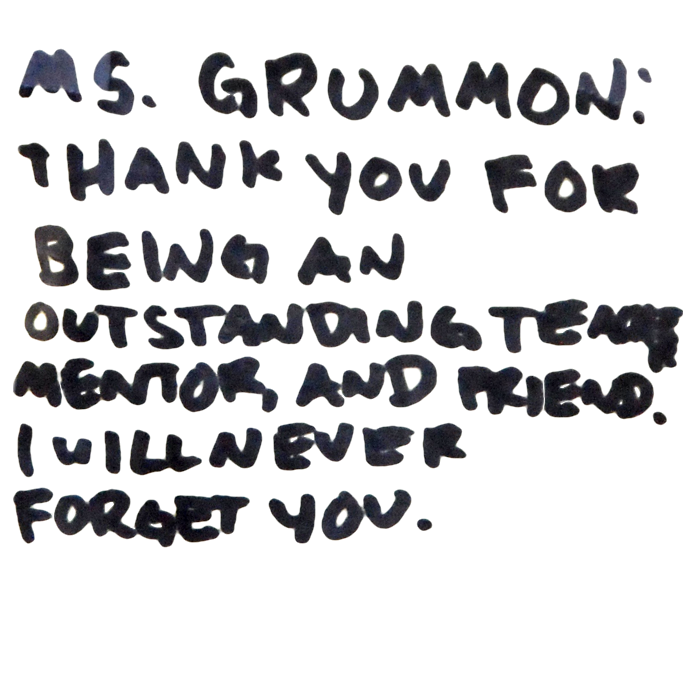 MS. GRUMMON:
THANK YOU FOR
BEING AN
OUTSTANDING
MENTOR, AND FRIEND.
I WILL NEVER
FORGET YOU.